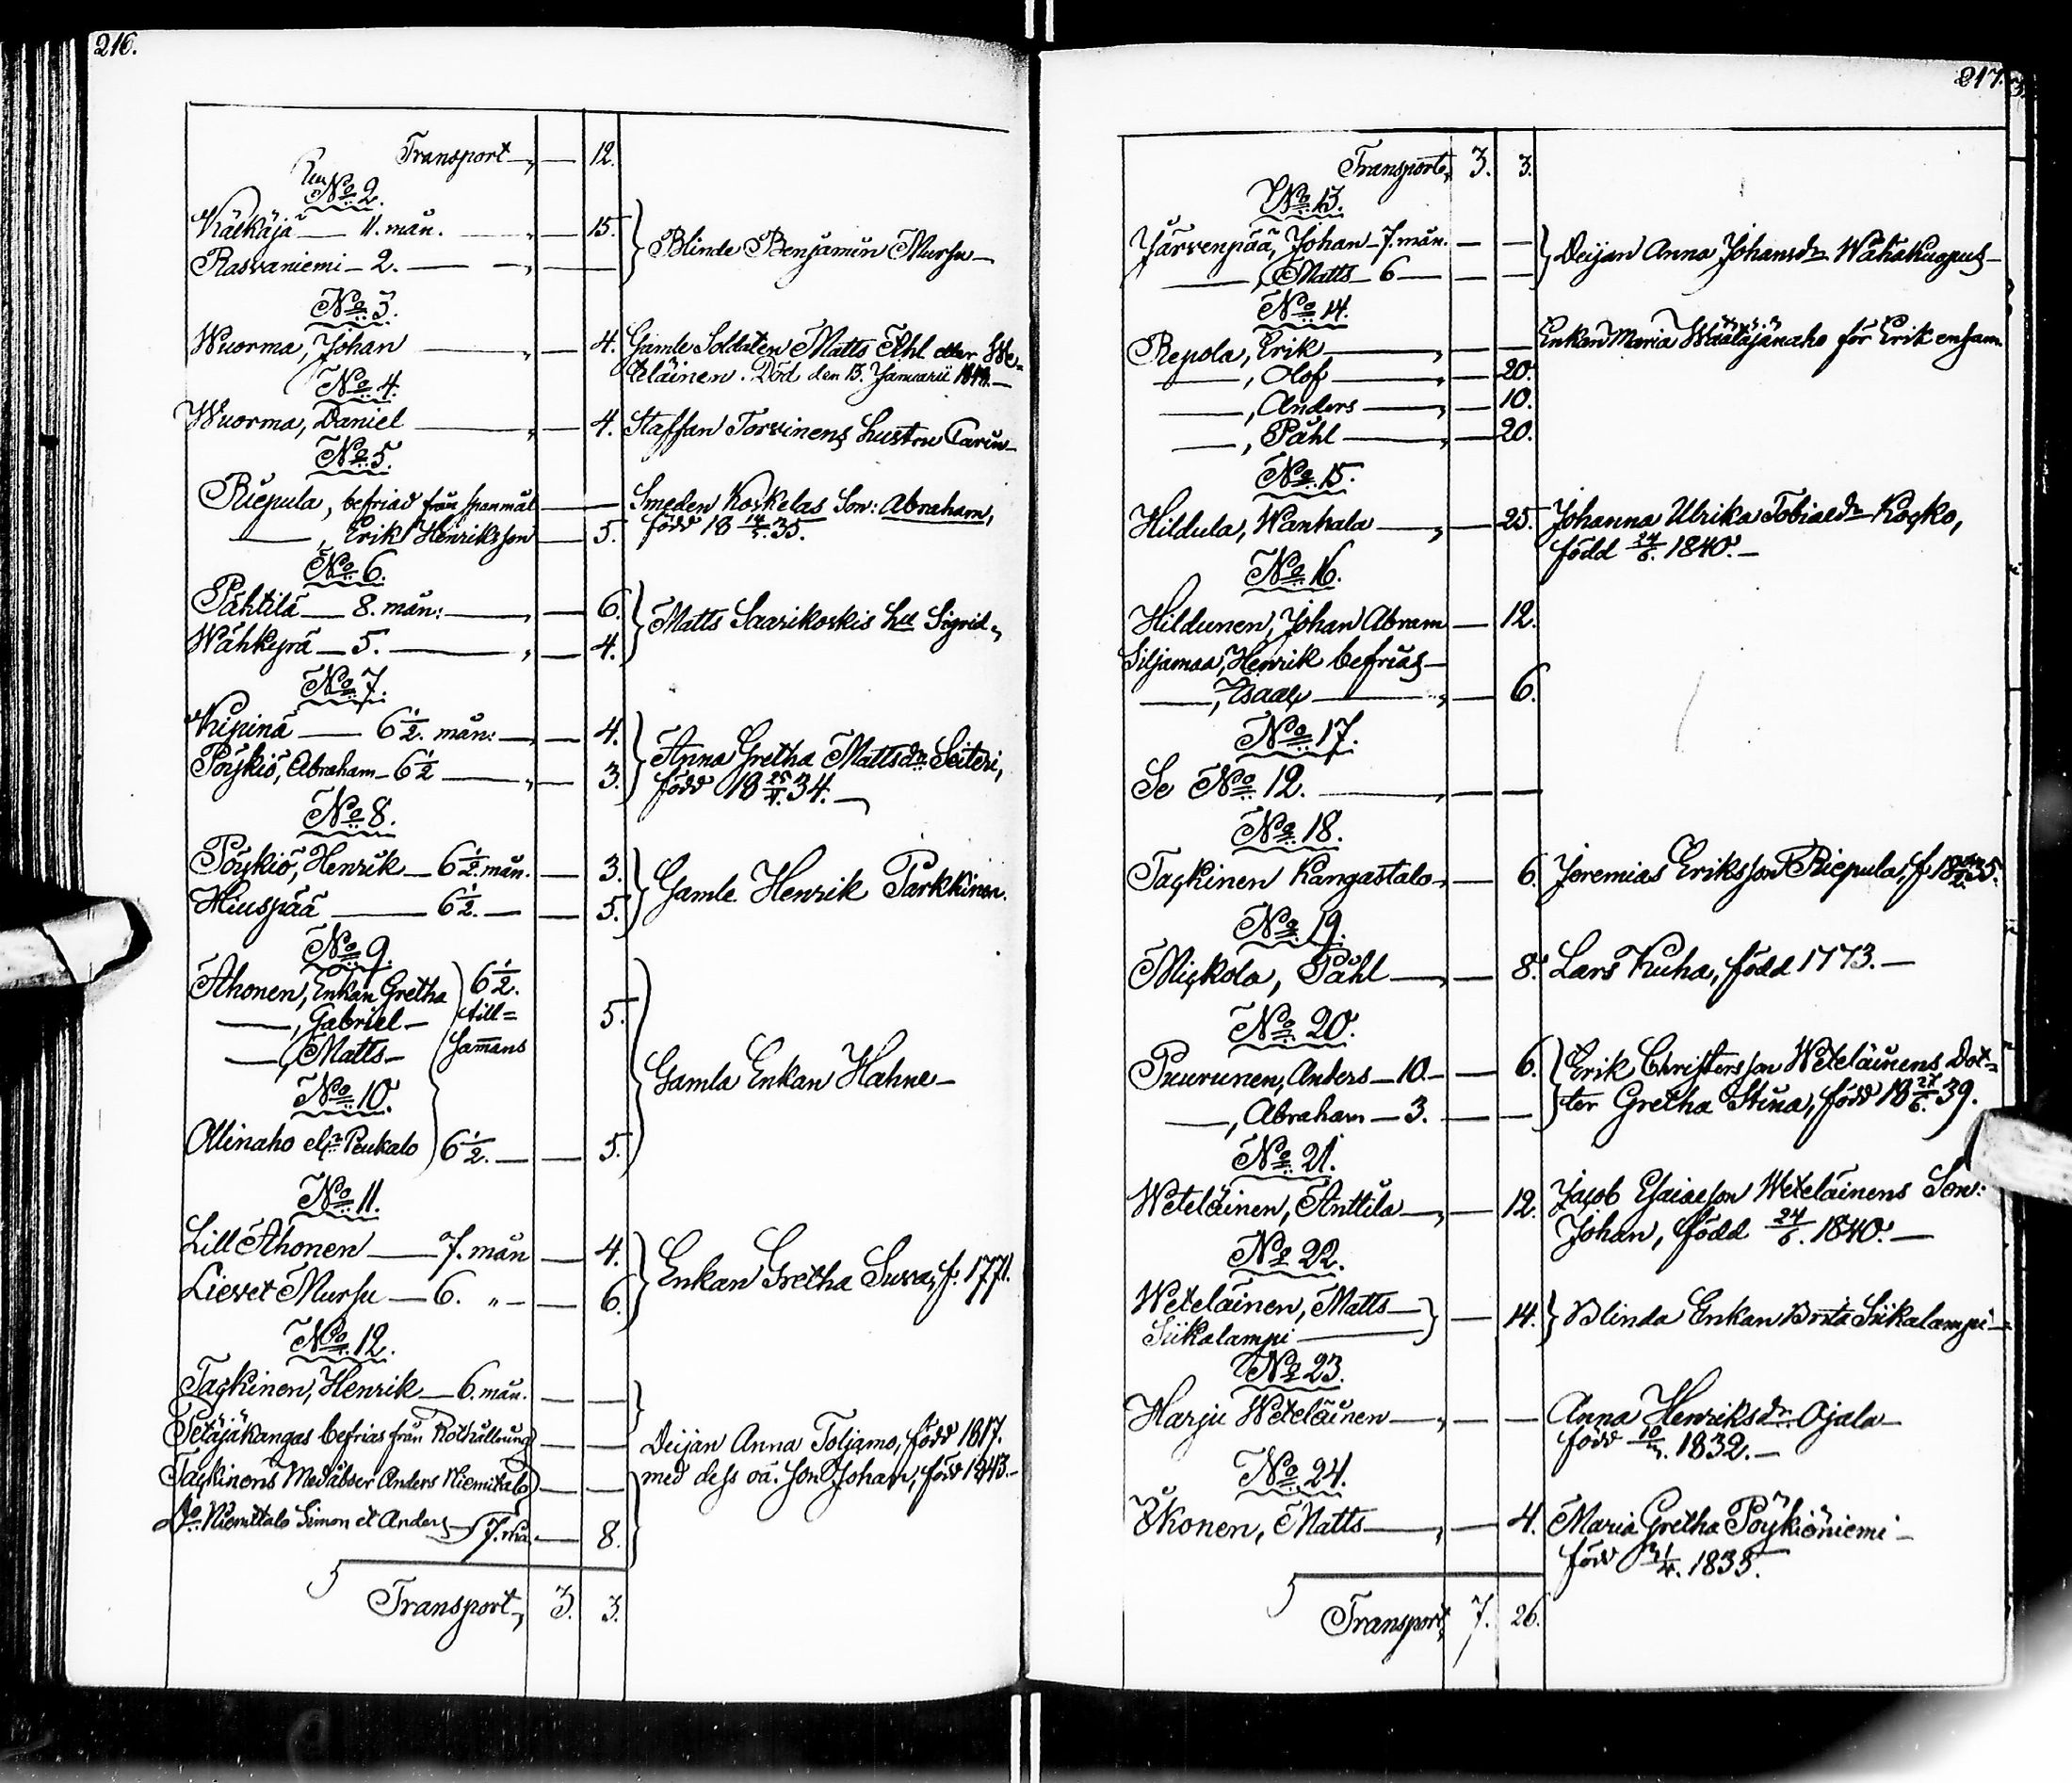 216.
Transport — 12.
No 2.
Kälkäjä — 11. mån. — 15. Blinde Benjamin Mursu —
Rasvaniemi — 2. —
No 3.
Wuorma, Johan — 4. Gamle Soldaten Matts Ahl eller We-
teläinen. Död den 13. Januarii —
No 4.
Wuorma, Daniel — 4. Staffan Torvinens hustru Carin —
No 5.
Riepula, befriad från spanmål — Smeden Koskelas Son: Abraham,
—, Erik Henriksson — 5. född 18 14/5. 35.
No 6.
Pähtilä — 8. mån: — 6. Matts Saarikoskis hu Sigrid
Wähkyrä — 5. — 4.
No 7.
Kipinä — 6 1/2. mån: — 4. Anna Gretha Mattsdr Seiteri,
Pöykiö, Abraham — 6 1/2 — 3. född 18 25/4. 34. —
No 8.
Pöykiö, Henrik — 6 1/2. mån. — 3. Gamle Henrik Parkkinen.
Hiuspää — 6 1/2. — 5.
No 9.
Ahonen, Enkan Gretha 6 1/2.
—, Gabriel — till= 5.
—, Matts — sam̄ans
Gamla Enkan Hahne —
No 10.
Alinaho elr Peukalo 6 1/2. — 5.
No 11.
Lill Ahonen — 7. mån — 4. Enkan Gretha Suva, f. 1771.
Lievet Mursu — 6. " — 6.
No 12.
Taskinen, Henrik — 6. mån. —
Petäjäkangas befrias från Rothållning — Deijan Anna Toljamo, född 1817.
Taskinens Medåboer Anders Niemitalo — med dess oä. son Johan, född 1843. —
Do Niemitalo Simon et Anders — 7. må. — 8.
Transport, 3. 3.
217.
Transport, 3. 3.
No 13.
Järvenpää, Johan — 7. mån. — Deijan Anna Johansdr Wähäkuopus —
—, Matts — 6 —
No 14.
Repola, Erik — Enkan Maria Wäätäjänaho för Erik ensam
—, Olof — 20.
—, Anders — 10.
—, Påhl — 20.
No 15.
Hildula, Wanhala — 25. Johanna Ulrika Tobiaedr Kosko,
född 24/6. 1840. —
No 16.
Hildunen, Johan Abram — 12.
Siljamaa, Henrik befrias —
—, Isaac — 6.
No 17.
Se No 12. —
No 18.
Taskinen Kangastalo — 6. Jeremias Eriksson Riepula, f. 18 35.
No 19.
Miskola, Påhl — 8. Lars Kuha, född 1773. —
No 20.
Puurunen, Anders — 10. — 6. Erik Christersson Weteläinens Dot=
—, Abraham — 3. — ter Gretha Stina, född 18 27/6. 39.
No 21.
Weteläinen, Anttila — 12. Jacob Esaiaeson Weteläinens Son:
Johan, född 24/6. 1840. —
No 22.
Weteläinen, Matts — 14. Blinda Enkan Brita Siikalampi —
Siikalampi —
No 23.
Harju Weteläinen — Anna Henriksdr Ojala —
född 1832. —
No 24.
Ikonen, Matts — 4. Maria Gretha Pöykiöniemi —
född 1835.
Transport, 7. 26.